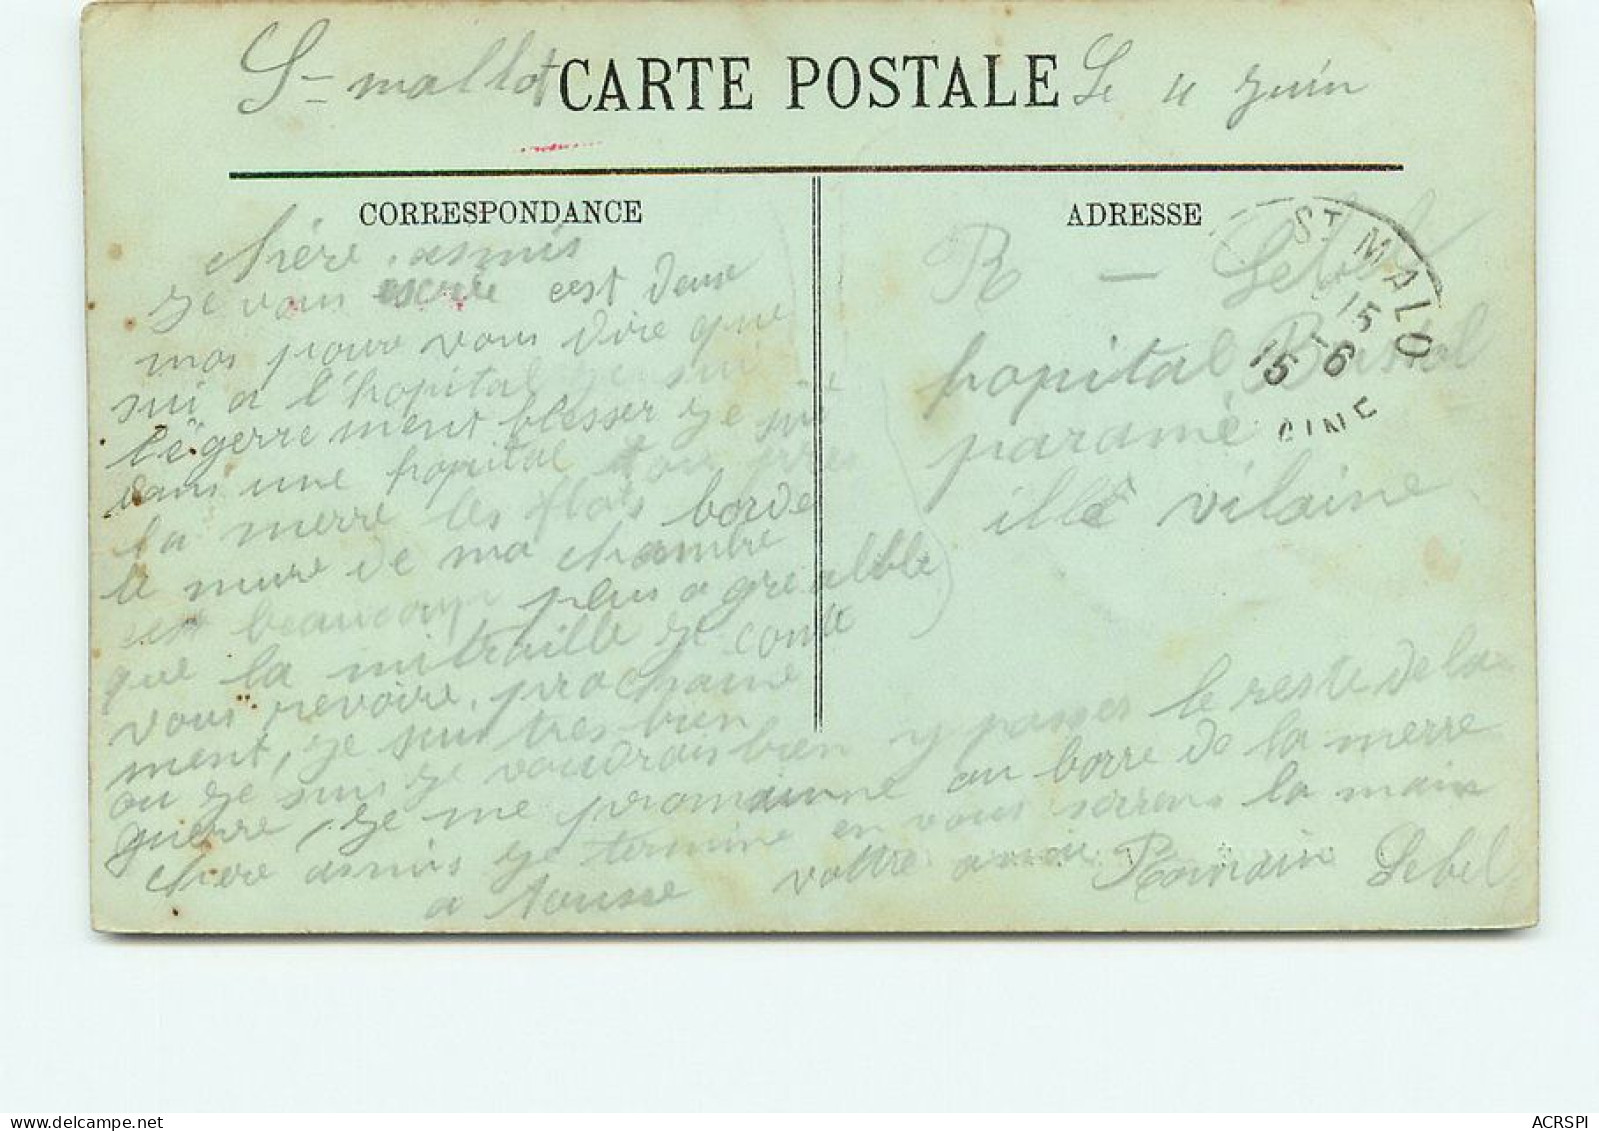 St-mallot CARTE POSTALE Le 4 Juin
CORRESPONDANCE
chére asmis
Je vous escrie cest deux
mos pour vous dire que
sui a l'hopital je sui
légerre ment blesser je sui
dans une hopital
la merre les flots borde
le mure de ma chambre
est beaucoup plus agrealble
que la mitraille je conte
vous revoire, prochaine
ment, je suis tres bien
ou je suis je voudrais bien y passer le reste de la
guerre, je me promainne au borre de la merre
chere asmis je termine en vous serrens la main
a tousse votre amie Romain Lebel
ADRESSE
R — Lebel
hopital
paramé
ille vilaine
ST MALO
15 - 6
15
ACRSPI